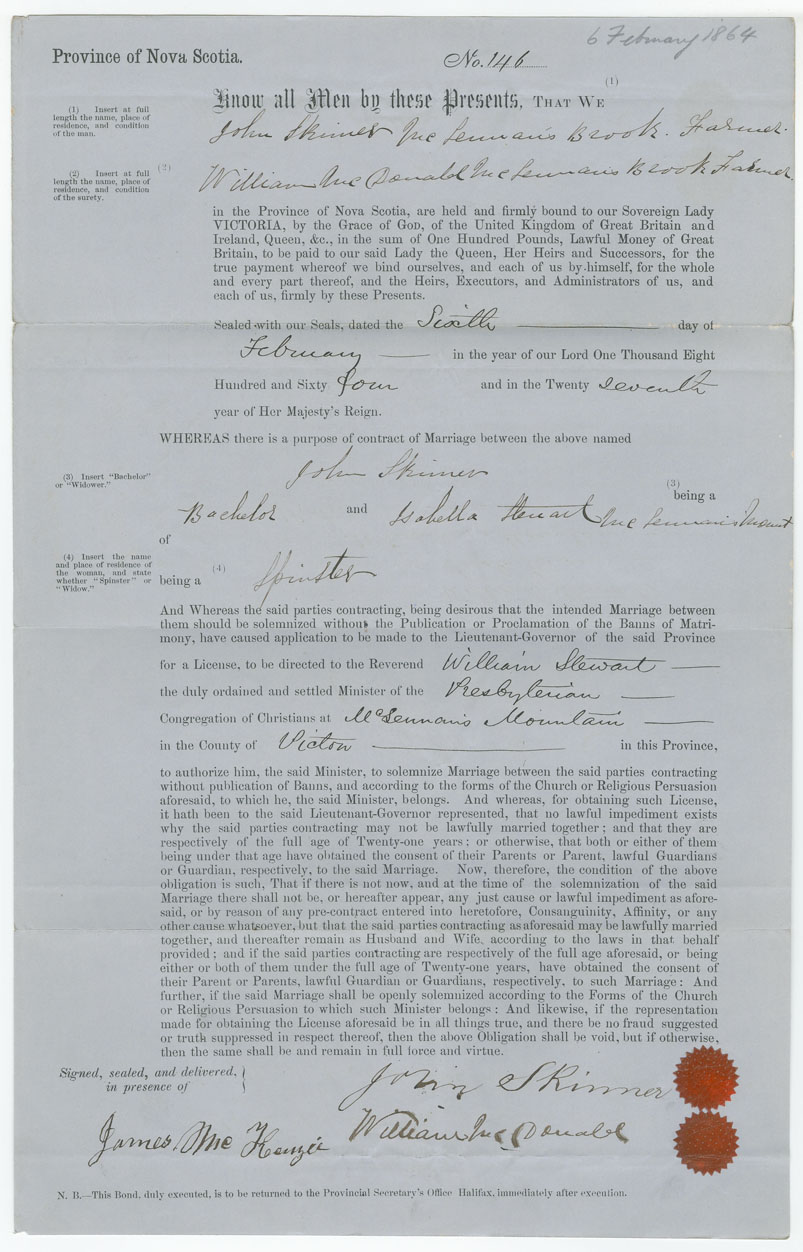 6 February 1864
Province of Nova Scotia.
No. 146
(1)
Know all Men by these Presents, THAT WE
(1) Insert at full
length the name, place of
residence, and condition
of the man.
John Skinner McLennan's Brook. Farmer.
(2) Insert at full
length the name, place of
residence, and condition
of the surety.
(2)
William McDonald McLennan's Brook Farmer
in the Province of Nova Scotia, are held and firmly bound to our Sovereign Lady
VICTORIA, by the Grace of GOD, of the United Kingdom of Great Britain and
Ireland, Queen, &c., in the sum of One Hundred Pounds, Lawful Money of Great
Britain, to be paid to our said Lady the Queen, Her Heirs and Successors, for the
true payment whereof we bind ourselves, and each of us by himself, for the whole
and every part thereof, and the Heirs, Executors, and Administrators of us, and
each of us, firmly by these Presents.
Sealed with our Seals, dated the Sixth day of
February in the year of our Lord One Thousand Eight
Hundred and Sixty four and in the Twenty seventh
year of Her Majesty's Reign.
WHEREAS there is a purpose of contract of Marriage between the above named
John Skinner
(3) Insert "Bachelor"
or "Widower."
(3)
being a
Bachelor and Isabella Stewart McLennan's Mount
of
(4) Insert the name
and place of residence of
the woman, and state
whether "Spinster" or
"Widow."
(4)
being a Spinster
And Whereas the said parties contracting, being desirous that the intended Marriage between
them should be solemnized without the Publication or Proclamation of the Banns of Matri-
mony, have caused application to be made to the Lieutenant-Governor of the said Province
for a License, to be directed to the Reverend William Stewart
the duly ordained and settled Minister of the Presbyterian
Congregation of Christians at McLennan's Mountain
in the County of Pictou in this Province,
to authorize him, the said Minister, to solemnize Marriage between the said parties contracting
without publication of Banns, and according to the forms of the Church or Religious Persuasion
aforesaid, to which he, the said Minister, belongs. And whereas, for obtaining such License,
it hath been to the said Lieutenant-Governor represented, that no lawful impediment exists
why the said parties contracting may not be lawfully married together; and that they are
respectively of the full age of Twenty-one years: or otherwise, that both or either of them
being under that age have obtained the consent of their Parents or Parent, lawful Guardians
or Guardian, respectively, to the said Marriage. Now, therefore, the condition of the above
obligation is such, That if there is not now, and at the time of the solemnization of the said
Marriage there shall not be, or hereafter appear, any just cause or lawful impediment as afore-
said, or by reason of any pre-contract entered into heretofore, Consanguinity, Affinity, or any
other cause whatsoever, but that the said parties contracting as aforesaid may be lawfully married
together, and thereafter remain as Husband and Wife, according to the laws in that behalf
provided; and if the said parties contracting are respectively of the full age aforesaid, or being
either or both of them under the full age of Twenty-one years, have obtained the consent of
their Parent or Parents, lawful Guardian or Guardians, respectively, to such Marriage: And
further, if the said Marriage shall be openly solemnized according to the Forms of the Church
or Religious Persuasion to which such Minister belongs: And likewise, if the representation
made for obtaining the License aforesaid be in all things true, and there be no fraud suggested
or truth suppressed in respect thereof, then the above Obligation shall be void, but if otherwise,
then the same shall be and remain in full force and virtue.
Signed, sealed, and delivered,
in presence of
John Skinner
James McKenzie
William McDonald
N. B.—This Bond, duly executed, is to be returned to the Provincial Secretary's Office Halifax, immediately after execution.